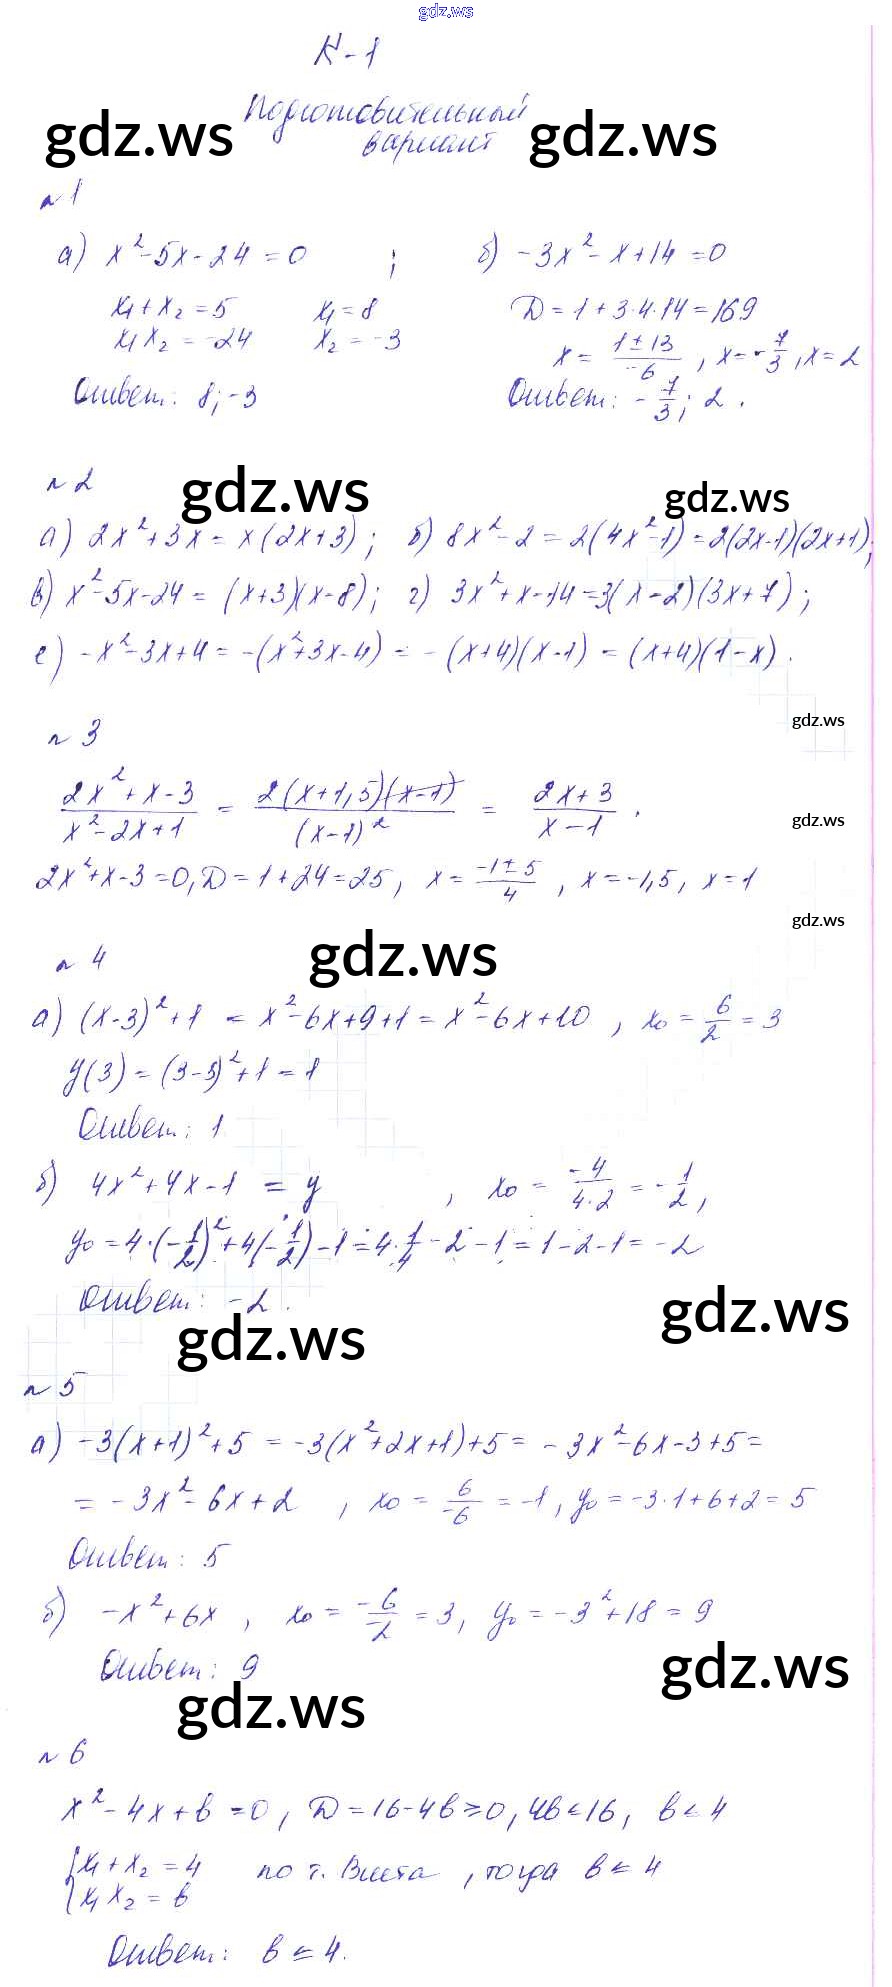 gdz.ws
К-1
Подготовительный
вариант
gdz.ws gdz.ws
№ 1
а) x² - 5x - 24 = 0 ; б) -3x² - x + 14 = 0
x₁ + x₂ = 5 x₁ = 8 D = 1 + 3·4·14 = 169
x₁x₂ = -24 x₂ = -3 x = (1 ± 13)/-6 , x = -7/3 , x = 2
Ответ: 8; -3 Ответ: -7/3; 2.
№ 2
gdz.ws gdz.ws
а) 2x² + 3x = x(2x+3); б) 8x² - 2 = 2(4x² - 1) = 2(2x-1)(2x+1);
в) x² - 5x - 24 = (x+3)(x-8); г) 3x² + x - 14 = 3(x-2)(3x+7);
е) -x² - 3x + 4 = -(x² + 3x - 4) = -(x+4)(x-1) = (x+4)(1-x).
gdz.ws
№ 3
(2x² + x - 3)/(x² - 2x + 1) = 2(x+1,5)(x-1)/(x-1)² = (2x+3)/(x-1).
gdz.ws
2x² + x - 3 = 0, D = 1 + 24 = 25, x = (-1 ± 5)/4 , x = -1,5, x = 1
gdz.ws
№ 4
gdz.ws
а) (x-3)² + 1 = x² - 6x + 9 + 1 = x² - 6x + 10 , x₀ = 6/2 = 3
y(3) = (3-3)² + 1 = 1
Ответ: 1
б) 4x² + 4x - 1 = y , x₀ = -4/(4·2) = -1/2,
y₀ = 4·(-1/2)² + 4(-1/2) - 1 = 4·1/4 - 2 - 1 = 1 - 2 - 1 = -2
Ответ: -2.
gdz.ws gdz.ws
№ 5
а) -3(x+1)² + 5 = -3(x² + 2x + 1) + 5 = -3x² - 6x - 3 + 5 =
= -3x² - 6x + 2 , x₀ = 6/-6 = -1, y₀ = -3·1 + 6 + 2 = 5
Ответ: 5
б) -x² + 6x , x₀ = -6/-2 = 3, y₀ = -3² + 18 = 9
Ответ: 9
gdz.ws gdz.ws
№ 6
x² - 4x + b = 0, D = 16 - 4b ≥ 0, 4b ≤ 16, b ≤ 4
{x₁ + x₂ = 4 по т. Виета, тогда b ≤ 4
x₁x₂ = b
Ответ: b ≤ 4.